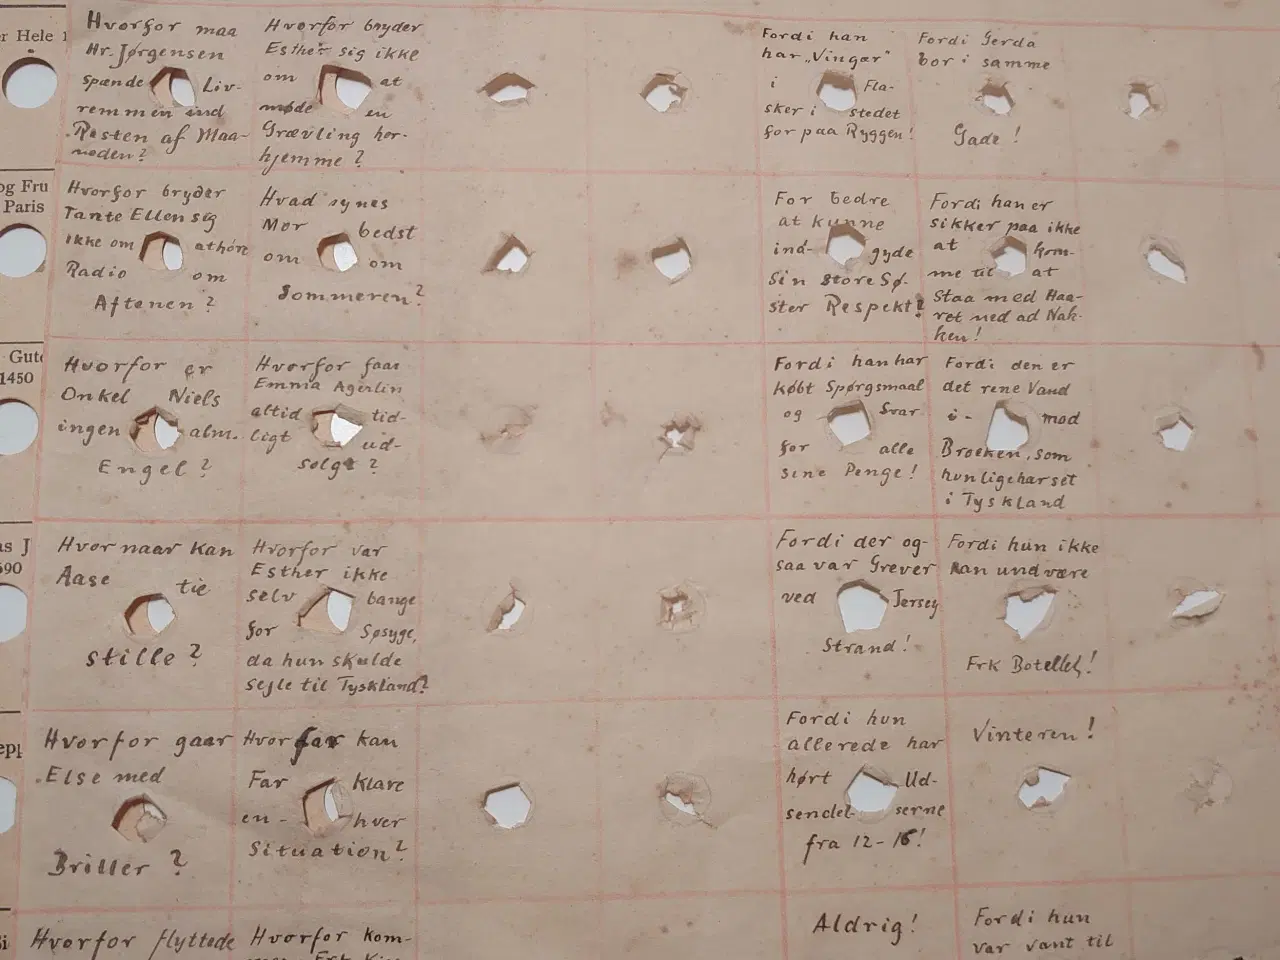 r Hele
Hvorfor maa
Hr. Jørgensen
spænde Liv-
remmen ind
Resten af Maa-
neden?
Hvorfor bryder
Esther sig ikke
om at
møde en
Grævling her-
hjemme?
Fordi han
har „Vinger"
i Fla-
sker i stedet
for paa Ryggen!
Fordi Gerda
bor i samme
Gade!
og Fru
Paris
Hvorfor bryder
Tante Ellen sig
ikke om at høre
Radio om
Aftenen?
Hvad synes
Mor bedst
om om
Sommeren?
For bedre
at kunne
ind- gyde
sin store Sø-
ster Respekt!
Fordi han er
sikker paa ikke
at kom-
me til at
staa med Haa-
ret ned ad Nak-
ken!
Gute
1450
Hvorfor er
Onkel Niels
ingen alm.
Engel?
Hvorfor faar
Emma Agerlin
altid tid-
ligt ud-
solgt?
Fordi han har
købt Spørgsmaal
og Svar
for alle
sine Penge!
Fordi den er
det rene Vand
i- mod
Brocken, som
hun lige har set
i Tyskland
as J
690
Hvornaar kan
Aase tie
stille?
Hvorfor var
Esther ikke
selv bange
for Søsyge,
da hun skulde
sejle til Tyskland?
Fordi der og-
saa var Grever
ved Jersey
Strand!
Fordi hun ikke
kan undvære
Frk Botelleh!
Hvorfor gaar
Else med
Briller?
Hvorfor kan
Far klare
en- hver
Situation?
Fordi hun
allerede har
hørt Ud-
sendel- serne
fra 12-16!
Vinteren!
Hvorfor flyttede
Hvorfor kom-
Aldrig!
Fordi hun
var vant til